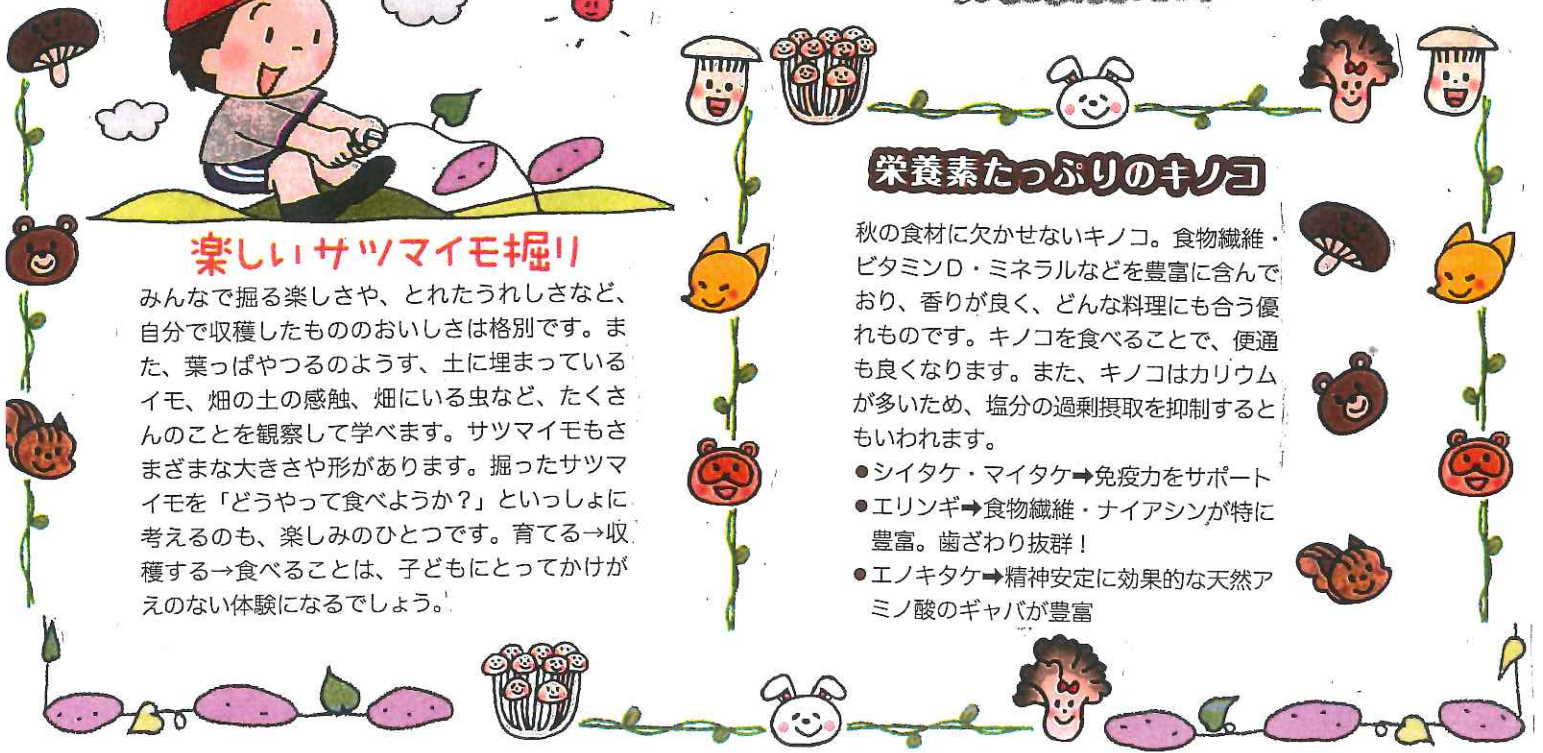 楽しいサツマイモ掘り
みんなで掘る楽しさや、とれたうれしさなど、
自分で収穫したもののおいしさは格別です。ま
た、葉っぱやつるのようす、土に埋まっている
イモ、畑の土の感触、畑にいる虫など、たくさ
んのことを観察して学べます。サツマイモもさ
まざまな大きさや形があります。掘ったサツマ
イモを「どうやって食べようか？」といっしょに
考えるのも、楽しみのひとつです。育てる→収
穫する→食べることは、子どもにとってかけが
えのない体験になるでしょう。
栄養素たっぷりのキノコ
秋の食材に欠かせないキノコ。食物繊維・
ビタミンD・ミネラルなどを豊富に含んで
おり、香りが良く、どんな料理にも合う優
れものです。キノコを食べることで、便通
も良くなります。また、キノコはカリウム
が多いため、塩分の過剰摂取を抑制すると
もいわれます。
●シイタケ・マイタケ➡免疫力をサポート
●エリンギ➡食物繊維・ナイアシンが特に
豊富。歯ざわり抜群！
●エノキタケ➡精神安定に効果的な天然ア
ミノ酸のギャバが豊富